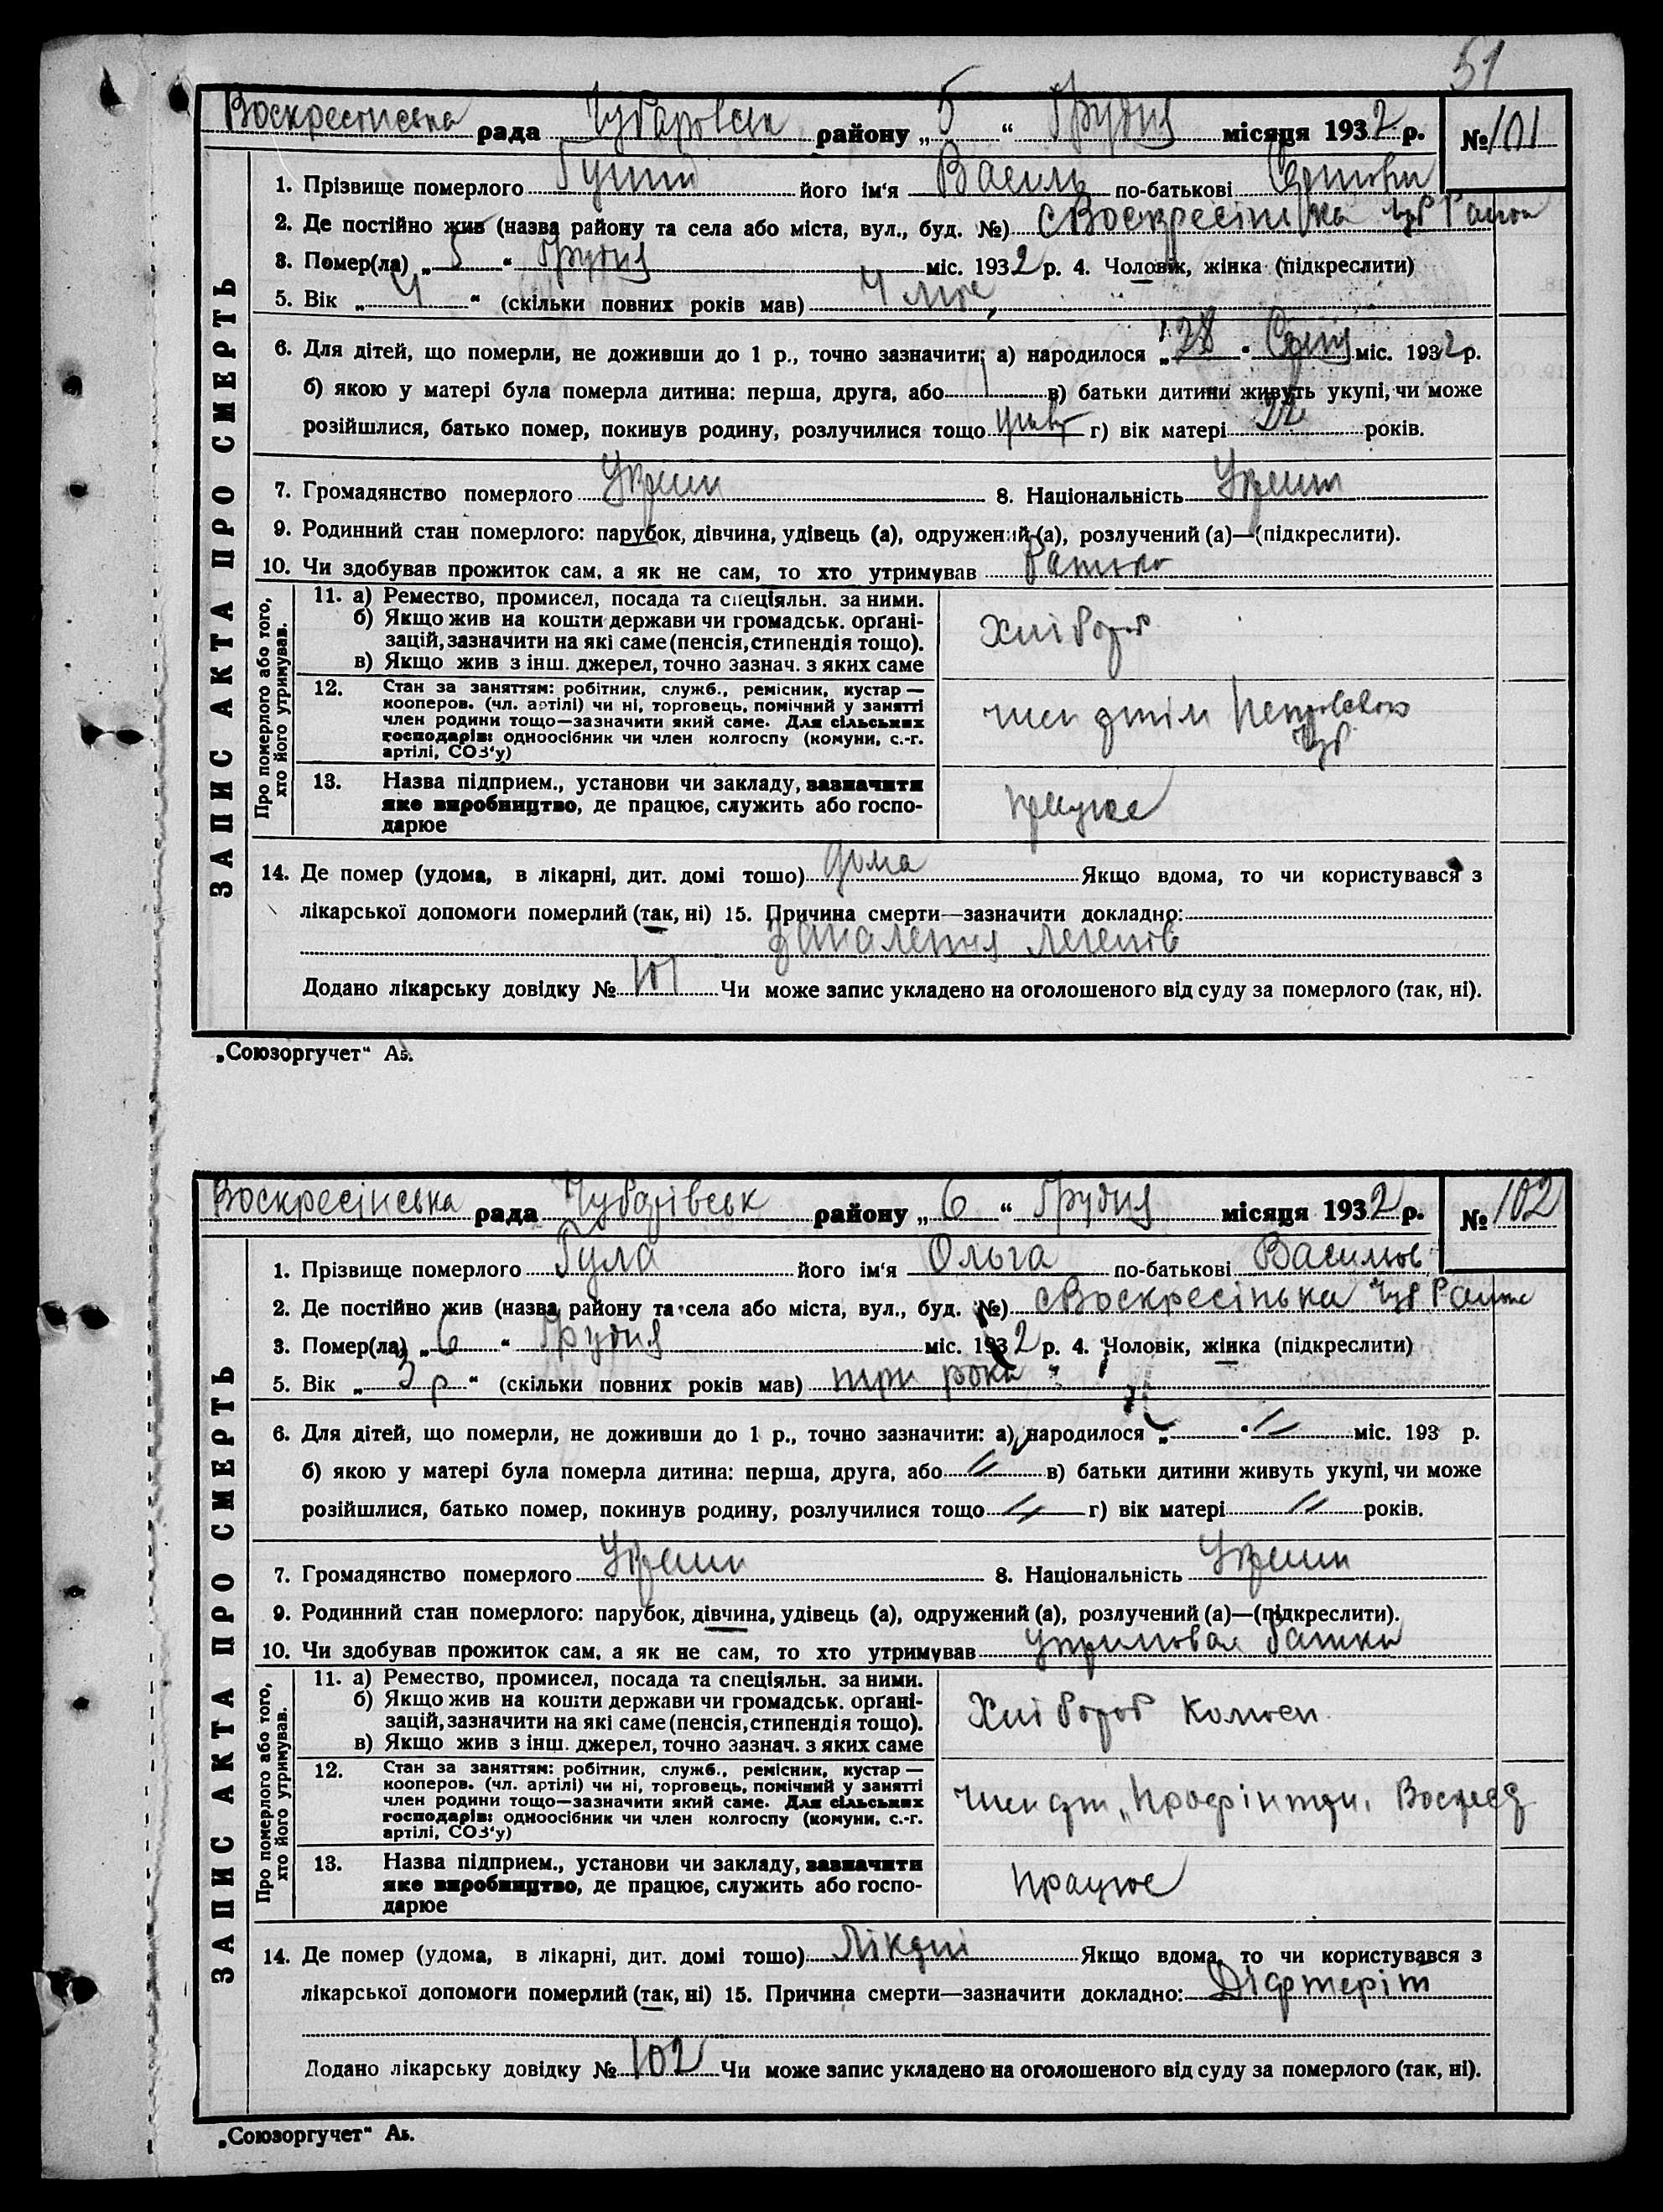 51
Воскресенська рада Чубаровськ району „ 5 “ Грудня місяця 1932 р. № 101
ЗАПИС АКТА ПРО СМЕРТЬ
1. Прізвище померлого його ім'я Василь по-батькові
2. Де постійно жив (назва району та села або міста, вул., буд. №) с Воскресінка Чуб Район
3. Помер(ла) „ 5 “ Грудня міс. 1932 р. 4. Чоловік, жінка (підкреслити)
5. Вік „ 4 “ (скільки повних років мав) 4 міс,
6. Для дітей, що померли, не доживши до 1 р., точно зазначити: а) народилося „ 28 “ міс. 1932 р.
б) якою у матері була померла дитина: перша, друга, або 1 в) батьки дитини живуть укупі, чи може
розійшлися, батько помер, покинув родину, розлучилися тощо г) вік матері 22 років.
7. Громадянство померлого Украин 8. Національність Украин
9. Родинний стан померлого: парубок, дівчина, удівець (а), одружений (а), розлучений (а)—(підкреслити).
10. Чи здобував прожиток сам, а як не сам, то хто утримував Батько
Про померлого або того, хто його утримував.
11. а) Ремество, промисел, посада та спеціяльн. за ними.
б) Якщо жив на кошти держави чи громадськ. орґані-
зацій, зазначити на які саме (пенсія, стипендія тощо).
в) Якщо жив з інш. джерел, точно зазнач. з яких саме
Хлібороб
12. Стан за заняттям: робітник, служб., ремісник, кустар —
кооперов. (чл. артілі) чи ні, торговець, помічний у занятті
член родини тощо—зазначити який саме. Для сільських
господарів: одноосібник чи член колгоспу (комуни, с.-г.
артілі, СОЗ'у)
член артіли Петровского
Чуб
13. Назва підприєм., установи чи закладу, зазначити
яке виробництво, де працює, служить або госпо-
дарює
працює
14. Де помер (удома, в лікарні, дит. домі тошо) дома Якщо вдома, то чи користувався з
лікарської допомоги померлий (так, ні) 15. Причина смерти—зазначити докладно:
Запалення легенів
Додано лікарську довідку № 101 Чи може запис укладено на оголошеного від суду за померлого (так, ні).
„Союзоргучет“ А5.
Воскресінська рада Чубарівськ району „ 6 “ Грудня місяця 1932 р. № 102
ЗАПИС АКТА ПРО СМЕРТЬ
1. Прізвище померлого Гула його ім'я Ольга по-батькові Василів
2. Де постійно жив (назва району та села або міста, вул., буд. №) с Воскресінька Чуб Район
3. Помер(ла) „ 6 “ Грудня міс. 1932 р. 4. Чоловік, жінка (підкреслити)
5. Вік „ 3 р “ (скільки повних років мав) три рока
6. Для дітей, що померли, не доживши до 1 р., точно зазначити: а) народилося „ “ // міс. 193 р.
б) якою у матері була померла дитина: перша, друга, або // в) батьки дитини живуть укупі, чи може
розійшлися, батько помер, покинув родину, розлучилися тощо // г) вік матері // років.
7. Громадянство померлого Украин 8. Національність Украин
9. Родинний стан померлого: парубок, дівчина, удівець (а), одружений (а), розлучений (а)—(підкреслити).
10. Чи здобував прожиток сам, а як не сам, то хто утримував утримовал батьки
Про померлого або того, хто його утримував.
11. а) Ремество, промисел, посада та спеціяльн. за ними.
б) Якщо жив на кошти держави чи громадськ. орґані-
зацій, зазначити на які саме (пенсія, стипендія тощо).
в) Якщо жив з інш. джерел, точно зазнач. з яких саме
Хлібороб
12. Стан за заняттям: робітник, служб., ремісник, кустар —
кооперов. (чл. артілі) чи ні, торговець, помічний у занятті
член родини тощо—зазначити який саме. Для сільських
господарів: одноосібник чи член колгоспу (комуни, с.-г.
артілі, СОЗ'у)
член арт „Профінтерн,
13. Назва підприєм., установи чи закладу, зазначити
яке виробництво, де працює, служить або госпо-
дарює
працює
14. Де помер (удома, в лікарні, дит. домі тошо) Лікарні Якщо вдома, то чи користувався з
лікарської допомоги померлий (так, ні) 15. Причина смерти—зазначити докладно: Діфтеріт
Додано лікарську довідку № 102 Чи може запис укладено на оголошеного від суду за померлого (так, ні).
„Союзоргучет“ А5.